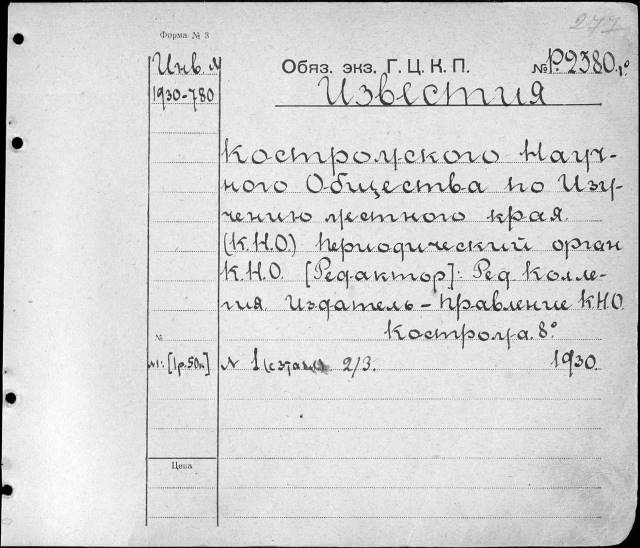 277
Форма № 3
Инв. №
Обяз. экз. Г. Ц. К. П.
№ Р.2380.1°
1930-780
Известия
Костромского Науч-
ного Общества по Изу-
чению местного края.
(К.Н.О.) Периодический орган
К.Н.О. [Редактор]: Ред. Колле-
гия. Издатель – Правление КНО.
Кострома. 8°.
№
№1: [1р.50к] № 1 2/3. 1930.
Цена